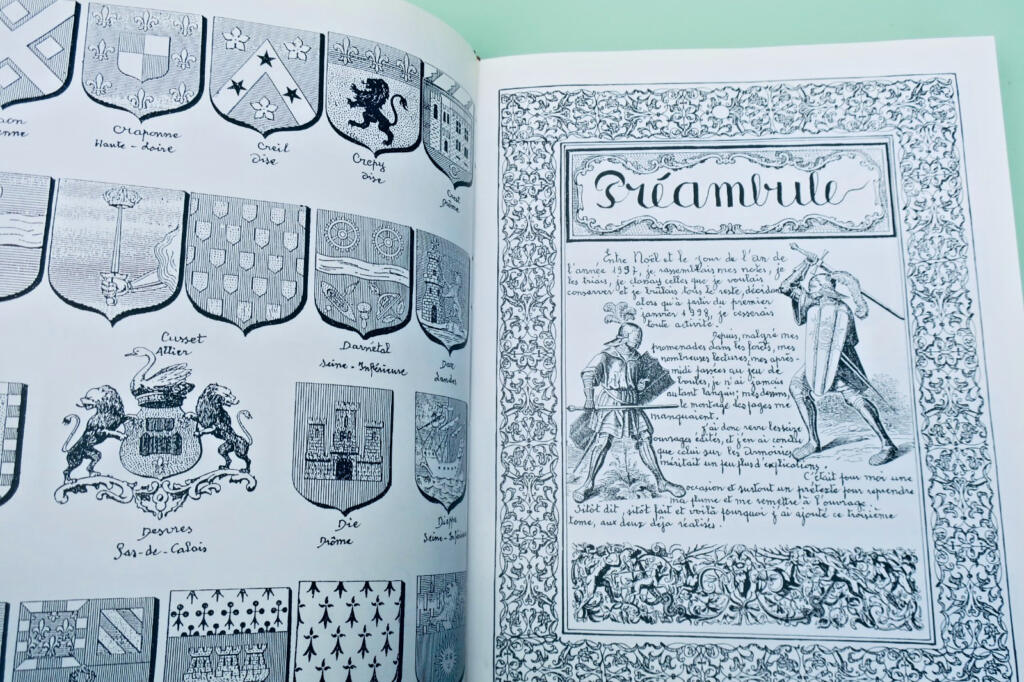 Craponne
Haute-Loire
Creil
Oise
Crépy
Oise
Crest
Drôme
Cusset
Allier
Darnétal
Seine-Inférieure
Dax
Landes
Desvres
Pas-de-Calais
Die
Drôme
Dieppe
Préambule
Entre Noël et le jour de l'an de
l'année 1997, je rassemblais mes notes, je
les triais, je classais celles que je voulais
conserver et je brûlais tout le reste, décidant
alors qu'à partir du premier
janvier 1998, je cesserais
toute activité.
Depuis, malgré mes
promenades dans les forêts, mes
nombreuses lectures, mes après-
midi passées au jeu de
boules, je n'ai jamais
autant langui; mes dessins,
le montage des pages me
manquaient.
J'ai donc revu les seize
ouvrages édités, et j'en ai conclu
que celui sur les Armoiries
méritait un peu plus d'explications.
C'était pour moi une
occasion et surtout un prétexte pour reprendre
ma plume et me remettre à l'ouvrage.
Sitôt dit, sitôt fait et voilà pourquoi j'ai ajouté ce troisième
tome, aux deux déjà réalisés.